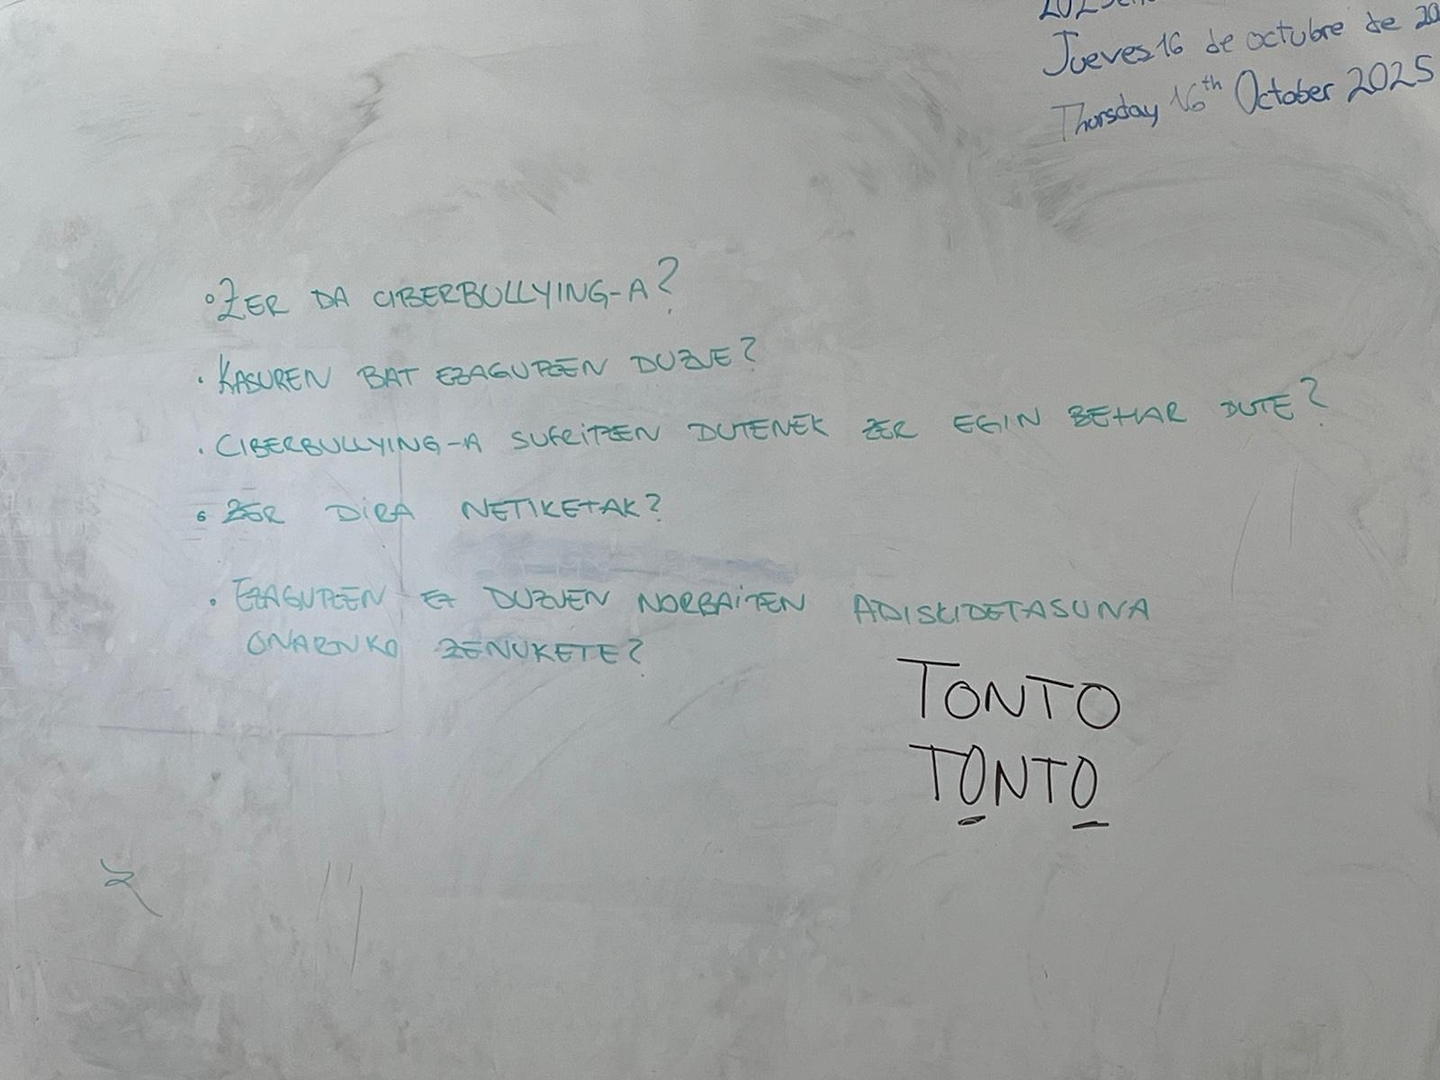 Jueves 16 de octubre de 20
Thursday 16th October 2025
° ZER DA CIBERBULLYING-A?
· KASUREN BAT EZAGUTZEN DUZUE?
· CIBERBULLYING-A SUFRITZEN DUTENEK ZER EGIN BEHAR DUTE?
· ZER DIRA NETIKETAK?
· EZAGUTZEN EZ DUZUEN NORBAITEN ADISKIDETASUNA
ONARTUKO ZENUKETE?
TONTO
TONTO